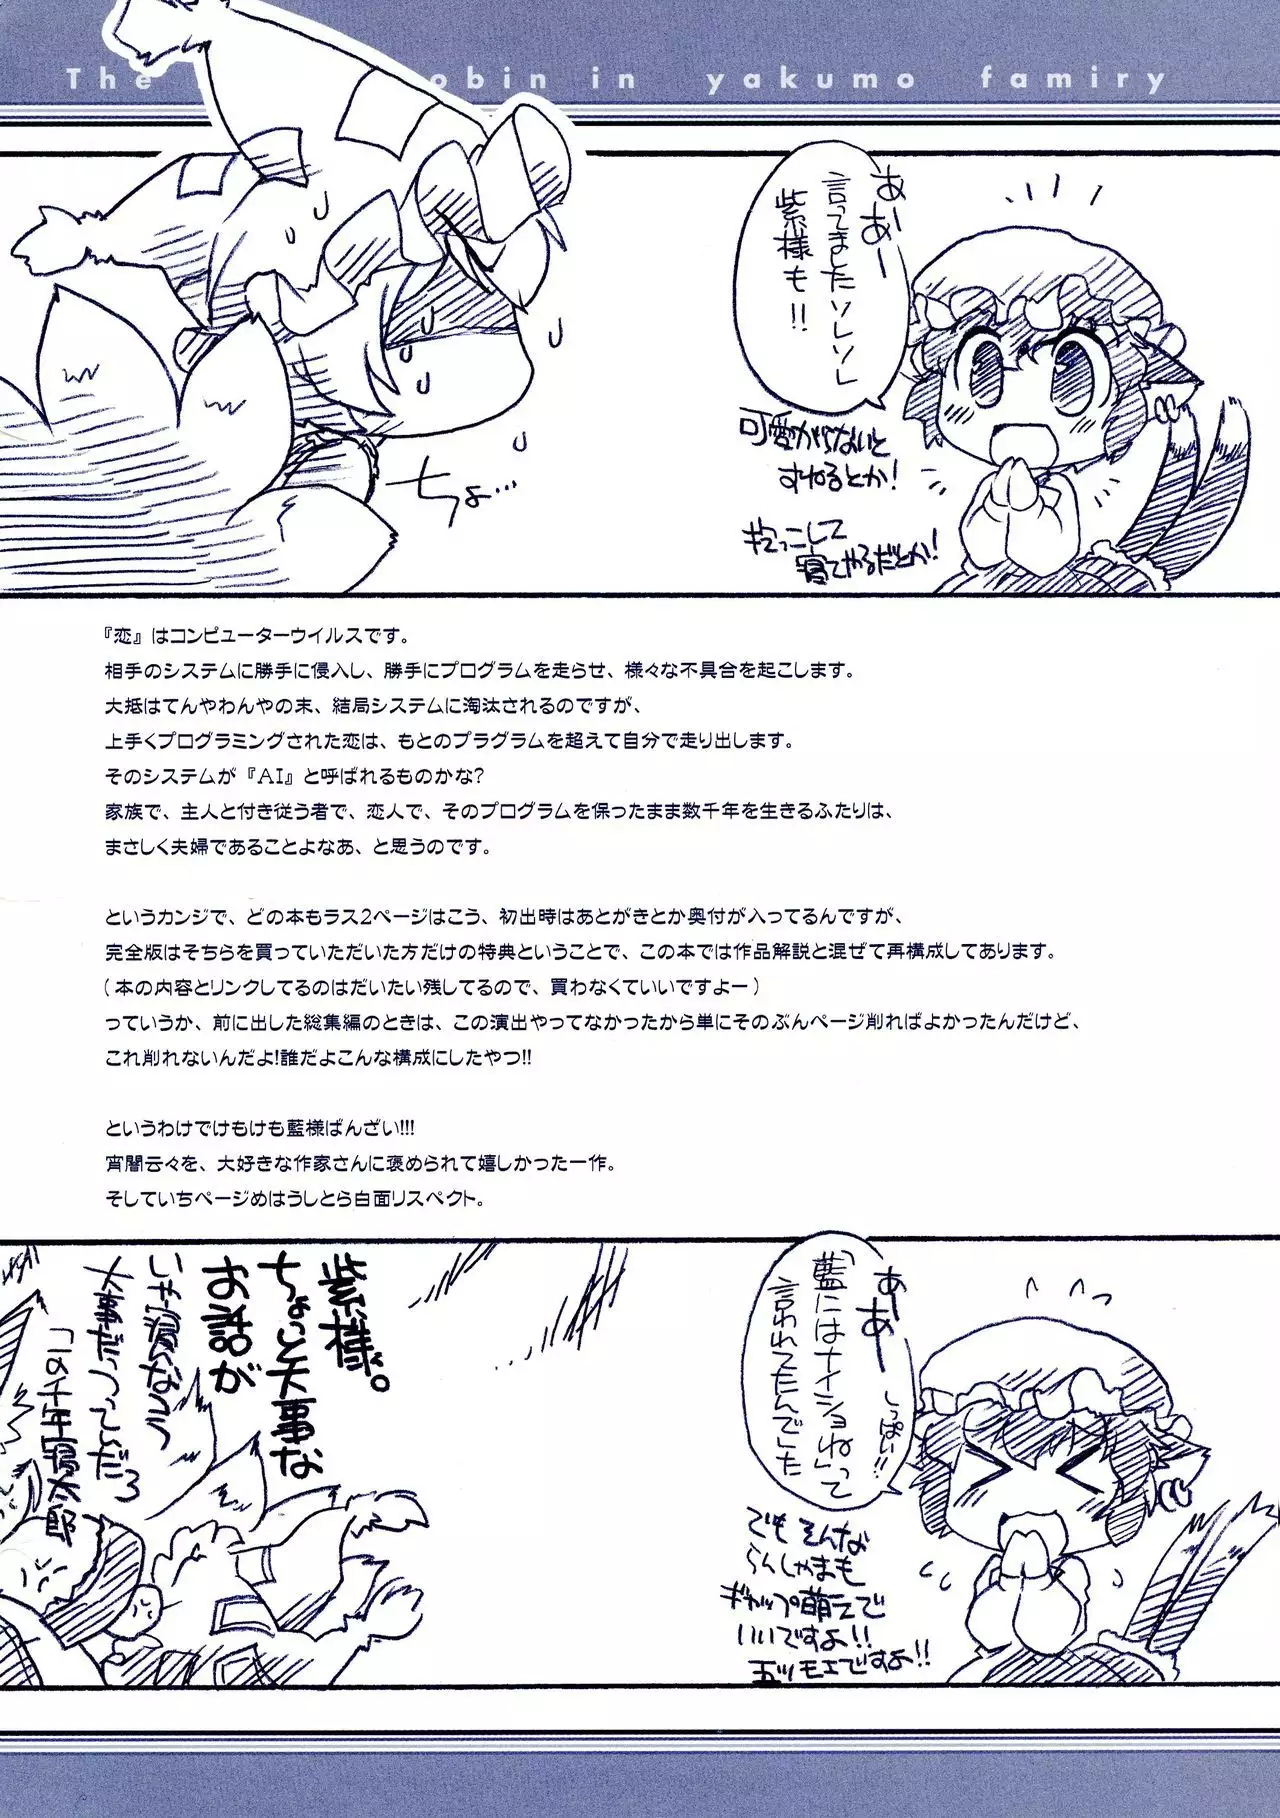 The obin in yakumo famiry
あぁー
言ってましたソレソレ
紫様も!!
可愛がらないと
すねるとか!
ぎてっこして
寝てやるだとか!
ちょ…
『恋』はコンピューターウイルスです。
相手のシステムに勝手に侵入し、勝手にプログラムを走らせ、様々な不具合を起こします。
大抵はてんやわんやの末、結局システムに淘汰されるのですが、
上手くプログラミングされた恋は、もとのプラグラムを超えて自分で走り出します。
そのシステムが『AI』と呼ばれるものかな?
家族で、主人と付き従う者で、恋人で、そのプログラムを保ったまま数千年を生きるふたりは、
まさしく夫婦であることよなあ、と思うのです。
というカンジで、どの本もラス2ページはこう、初出時はあとがきとか奥付が入ってるんですが、
完全版はそちらを買っていただいた方だけの特典ということで、この本では作品解説と混ぜて再構成してあります。
(本の内容とリンクしてるのはだいたい残してるので、買わなくていいですよー)
っていうか、前に出した総集編のときは、この演出やってなかったから単にそのぶんページ削ればよかったんだけど、
これ削れないんだよ!誰だよこんな構成にしたやつ!!
というわけでけもけも藍様ばんざい!!!
宵闇云々を、大好きな作家さんに褒められて嬉しかった一作。
そしていちページめはうしとら白面リスペクト。
あぁあー
しっぱい!!
「藍にはナイショね」って
言われてたんでした
でもそんな
らんしゃまも
ギャップ萌えで
いいですよ!!
五ツモエですよ!!
紫様。
ちょっと大事な
お話が
大事だっつってんだろ
「この千年寝太郎